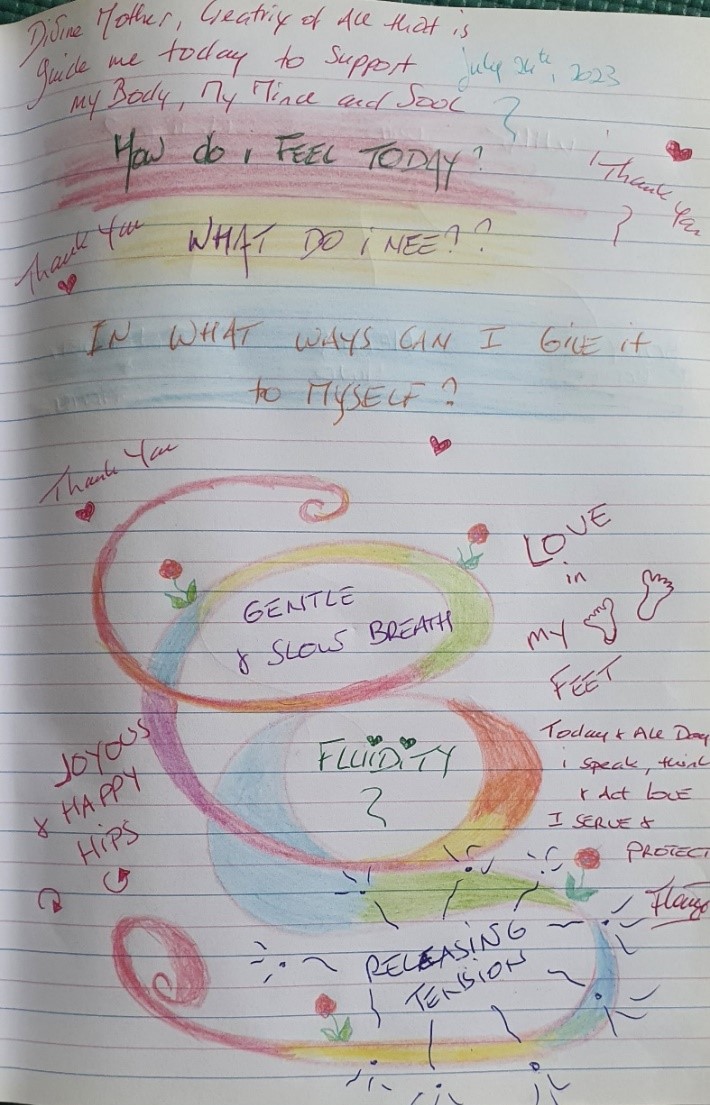 Divine Mother, Creatrix of All that is
guide me today to Support
July 24th, 2023
my Body, My Mind and Soul
How do i FEEL TODAY?
Thank You
Thank You
WHAT DO i NEE??
IN WHAT WAYS CAN I GIVE it
to MYSELF?
Thank You
LOVE
in
MY
FEET
GENTLE
& SLOW BREATH
JOYOUS
& HAPPY
HiPS
FLUiDiTY
Today & All Day
i speak, think
& Act love
I SERVE &
PROTECT
RELEASING
TENSION